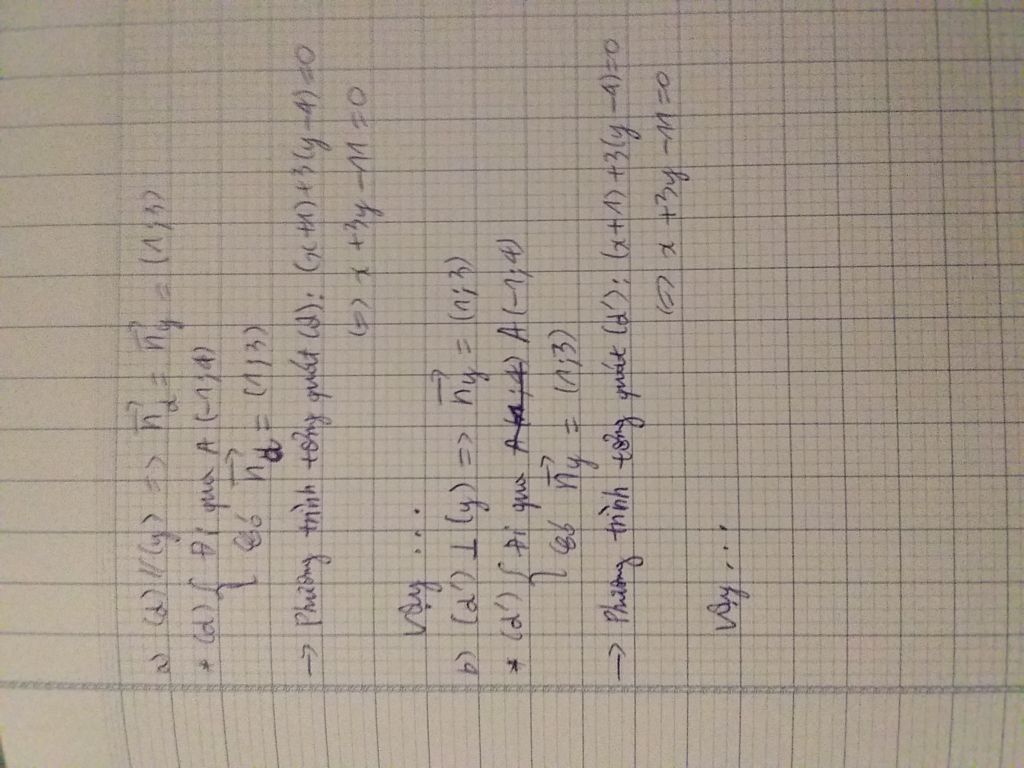 a) (d) // (y) => n⃗d = n⃗y = (1;3)
* (d) { Đi qua A (-1;4)
Có n⃗d = (1;3)
-> Phương trình tổng quát (d): (x+1)+3(y-4)=0
(=) x +3y -11 =0
Vậy ...
b) (d') ⊥ (y) => n⃗y = (1;3)
* (d') { Đi qua A (-1;4)
Có n⃗y = (1;3)
-> Phương trình tổng quát (d'): (x+1)+3(y-4)=0
(=) x +3y -11 =0
Vậy ...